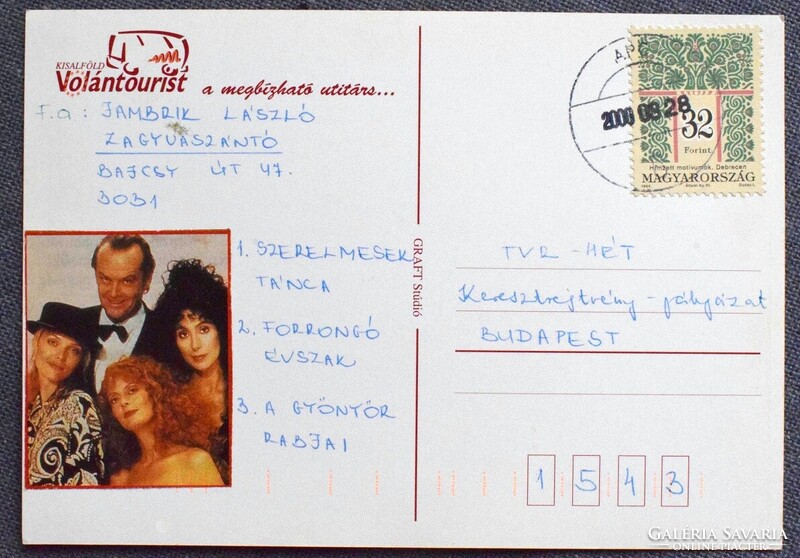 KISALFÖLD
Volántourist
a megbízható utitárs...
F.a: JAMBRIK LÁSZLÓ
ZAGYVASZÁNTÓ
BAJCSY ÚT 47.
3031
1. SZERELMESEK
TÁNCA
2. FORRONGÓ
ÉVSZAK
3. A GYÖNYÖR
RABJAI
GRAFT Stúdió
2000 08 28
32
Forint
Hímzett motívumok. Debrecen
MAGYARORSZÁG
TVR-HÉT
Keresztrejtvény-pályázat
BUDAPEST
1543
GALÉRIA SAVARIA
ONLINE PIACTÉR